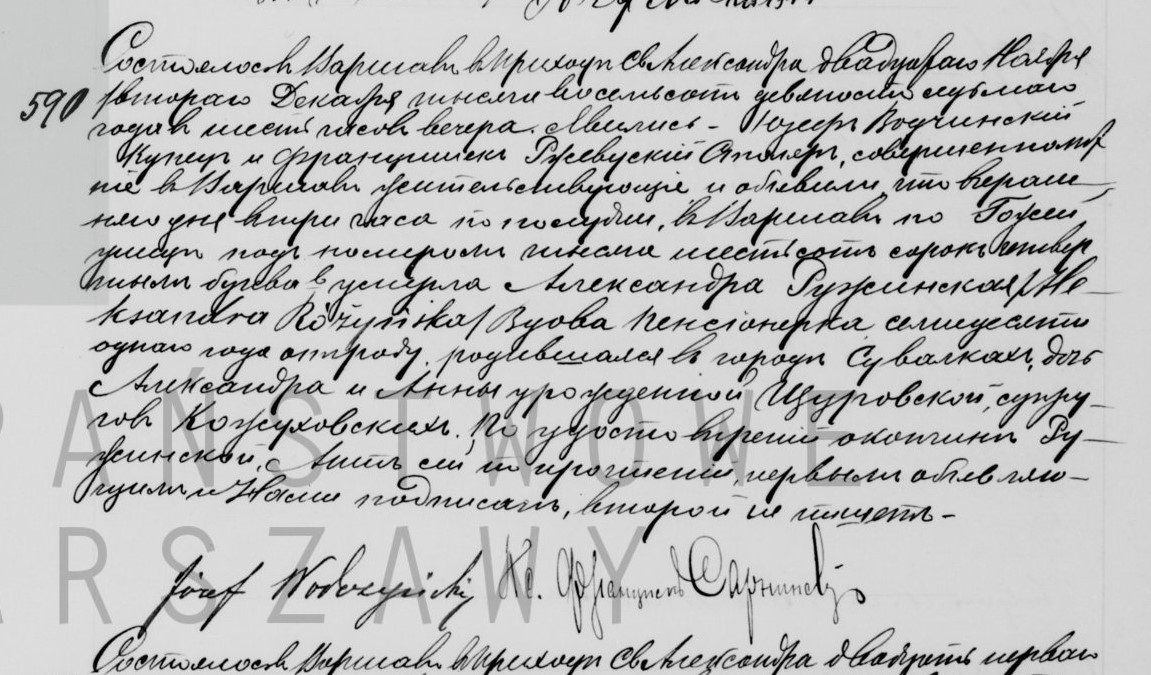 590
Состоялось въ Варшавѣ въ Приходѣ Св Александра двадцатаго Ноября
/втораго Декабря тысяча восемьсотъ девяносто седьмаго
года въ шесть часовъ вечера. Явились – Іозефъ Водчинскій
Купецъ и Францишекъ Ржевускій Столяръ, совершеннолѣт
ніе въ Варшавѣ жительствующіе и объявили, что вчераш–
няго дня въ три часа по полудни, въ Варшавѣ по Гожей
улицѣ подъ номеромъ тысяча шестьсотъ сорокъ четвер
тымъ буква в умерла Александра Ружинская /Ale–
ksandra Różyńska/ Вдова Пенсіонерка семидесяти
одного года отъ роду, родившаяся въ городѣ Сувалкахъ, дочь
Александра и Анны урожденной Щуровской, супру–
говъ Кожуховскихъ. По удостовѣреніи о кончинѣ Ру–
жинской, Актъ сей по прочтеніи, первымъ объявляю–
щимъ и Нами подписанъ, второй не пишетъ–
Józef Wodczyński Кс. Францискъ
Состоялось въ Варшавѣ въ Приходѣ Св Александра двадцать перваго
PAŃSTWOWE
WARSZAWY